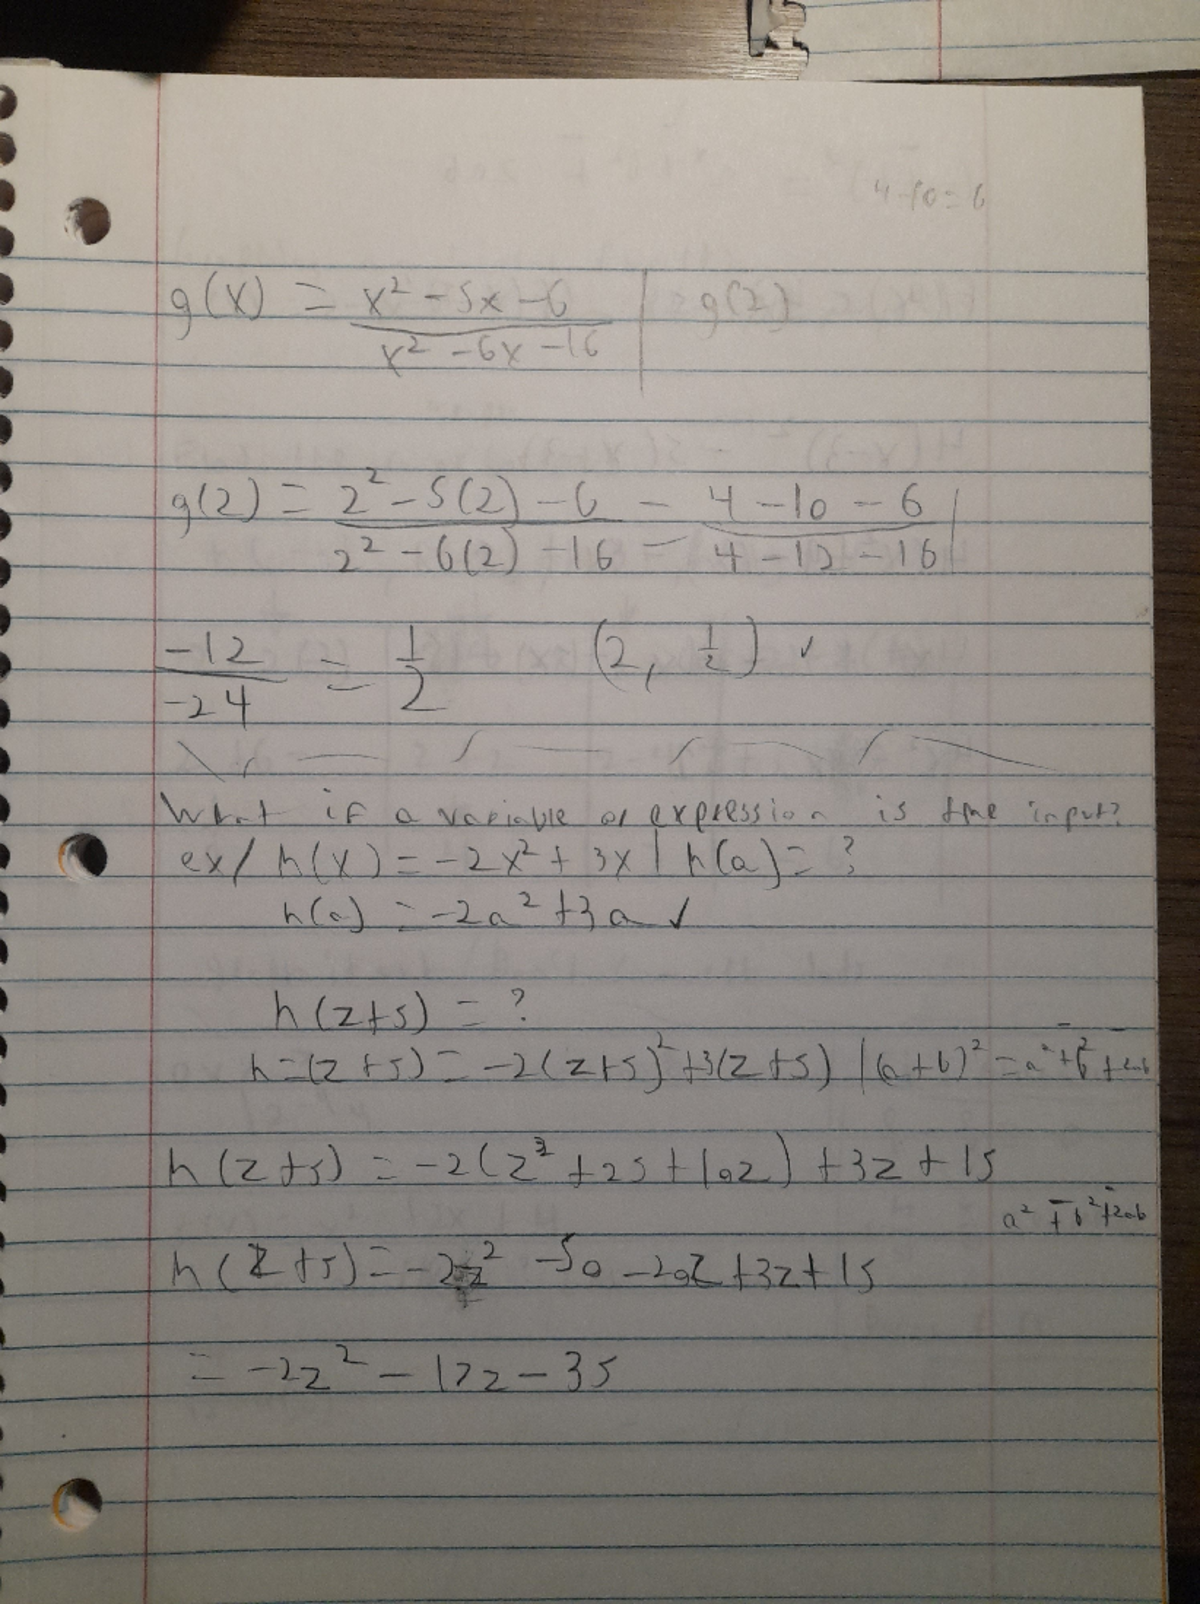 4-10=6
g(x) = x² - 5x - 6 / x² - 6x - 16 | g(2)
g(2) = 2² - 5(2) - 6 / 2² - 6(2) - 16 = 4 - 10 - 6 / 4 - 12 - 16 |
-12 / -24 = 1/2 (2, 1/2) ✓
What if a variable or expression is the input?
ex/ h(x) = -2x² + 3x | h(a) = ?
h(a) = -2a² + 3a ✓
h(z+5) = ?
h=(z+5) = -2(z+5)² + 3(z+5) | (a+b)² = a² ∓ b² ∓ 2ab
h(z+5) = -2(z² + 25 + 10z) + 3z + 15
a² ∓ b² ∓ 2ab
h(z+5) = -2z² - 50 - 20z + 3z + 15
= -2z² - 17z - 35